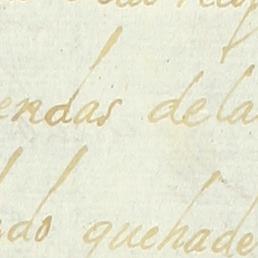 endas dela
ado quehade